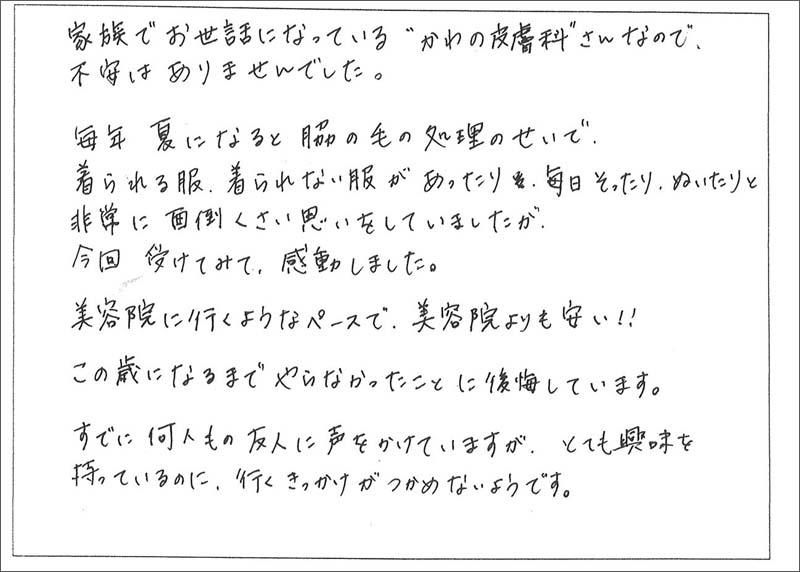 家族でお世話になっている“かわの皮膚科”さんなので、
不安はありませんでした。
毎年 夏になると 脇の毛の処理のせいで、
着られる服、着られない服が あったり、毎日 そったり、ぬいたりと
非常に 面倒くさい思いをしていましたが、
今回 受けてみて、感動しました。
美容院に行くようなペースで、美容院よりも安い!!
この歳になるまで やらなかったことに後悔しています。
すでに 何人もの 友人に声をかけていますが、とても興味を
持っているのに、行く きっかけが つかめないようです。